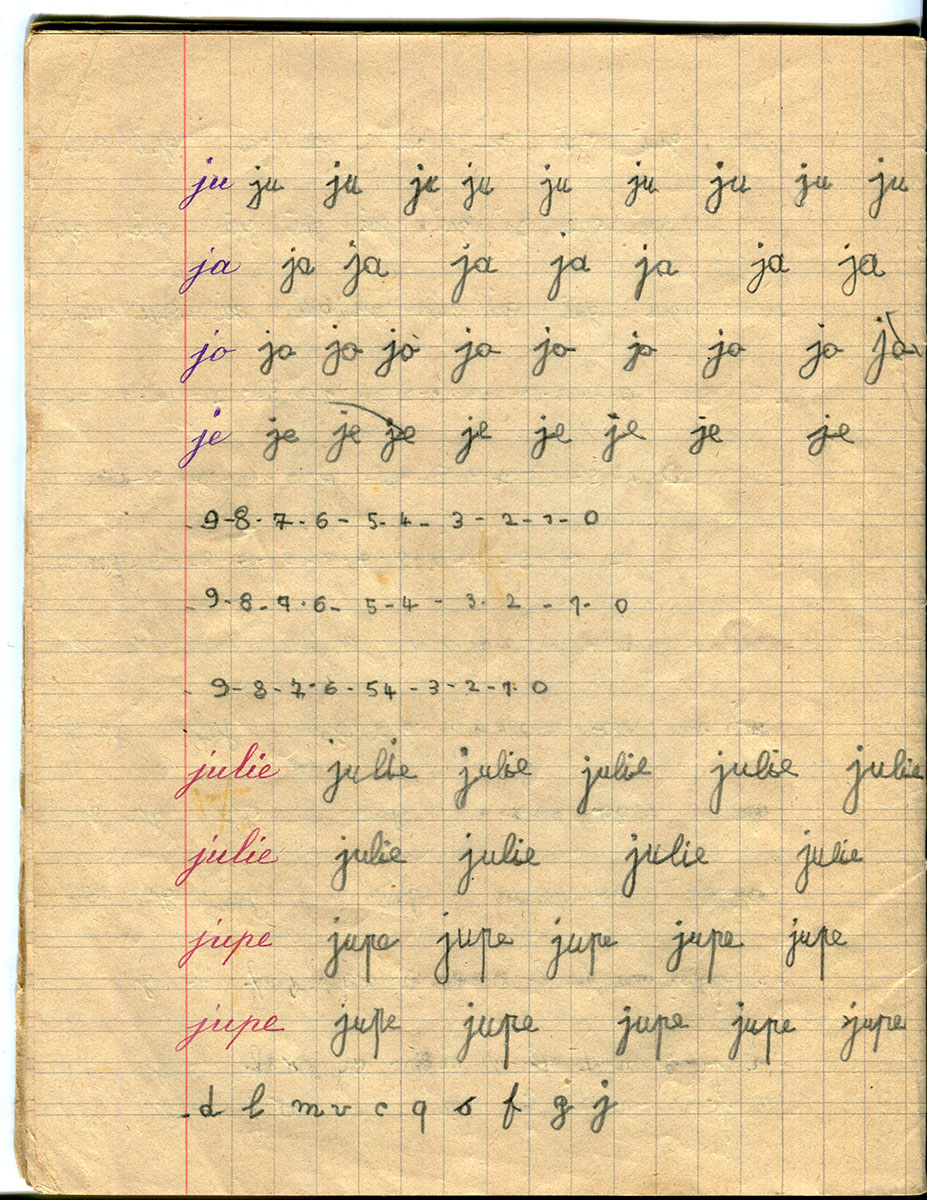 ju ju ju ju ju ju ju ju ju ju
ja ja ja ja ja ja ja ja
jo jo jo jo jo jo jo jo jo jo
je je je je je je je je je
9-8-7-6-5-4-3-2-1-0
9-8-7-6-5-4-3-2-1-0
9-8-7-6-54-3-2-1-0
julie julie julie julie julie julie
julie julie julie julie julie
jupe jupe jupe jupe jupe jupe
jupe jupe jupe jupe jupe jupe
d l m v c q s f g j